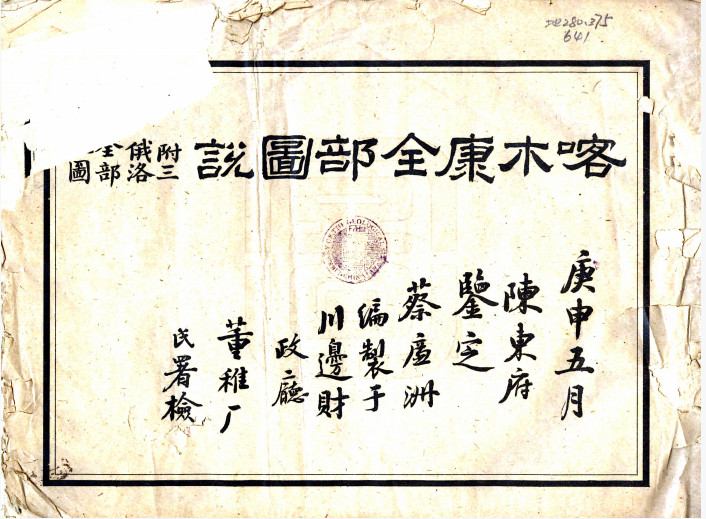 地280.375
641
喀木康全部圖說
附三
俄洛
全部
圖
庚申五月
陳東府
鑒定
蔡 洲
編製于
川邊財
政廳
董稚厂
署檢
GEOLOGICAL